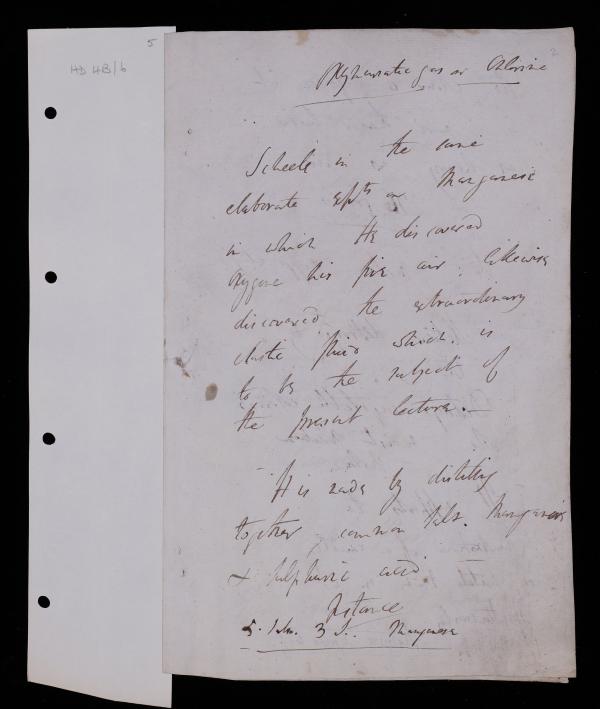 5
HD 4B/6
2
Oxymuriatic gas or Chlorine
Scheele in the same
elaborate expts on Manganese
in which He discovered
Oxygene his fire air; likewise
discovered the extraordinary
elastic fluid which is
to be the subject of
the present lecture. -
It is made by distilling
together common salt. Manganese
& sulphuric acid
5. 3 Manganese